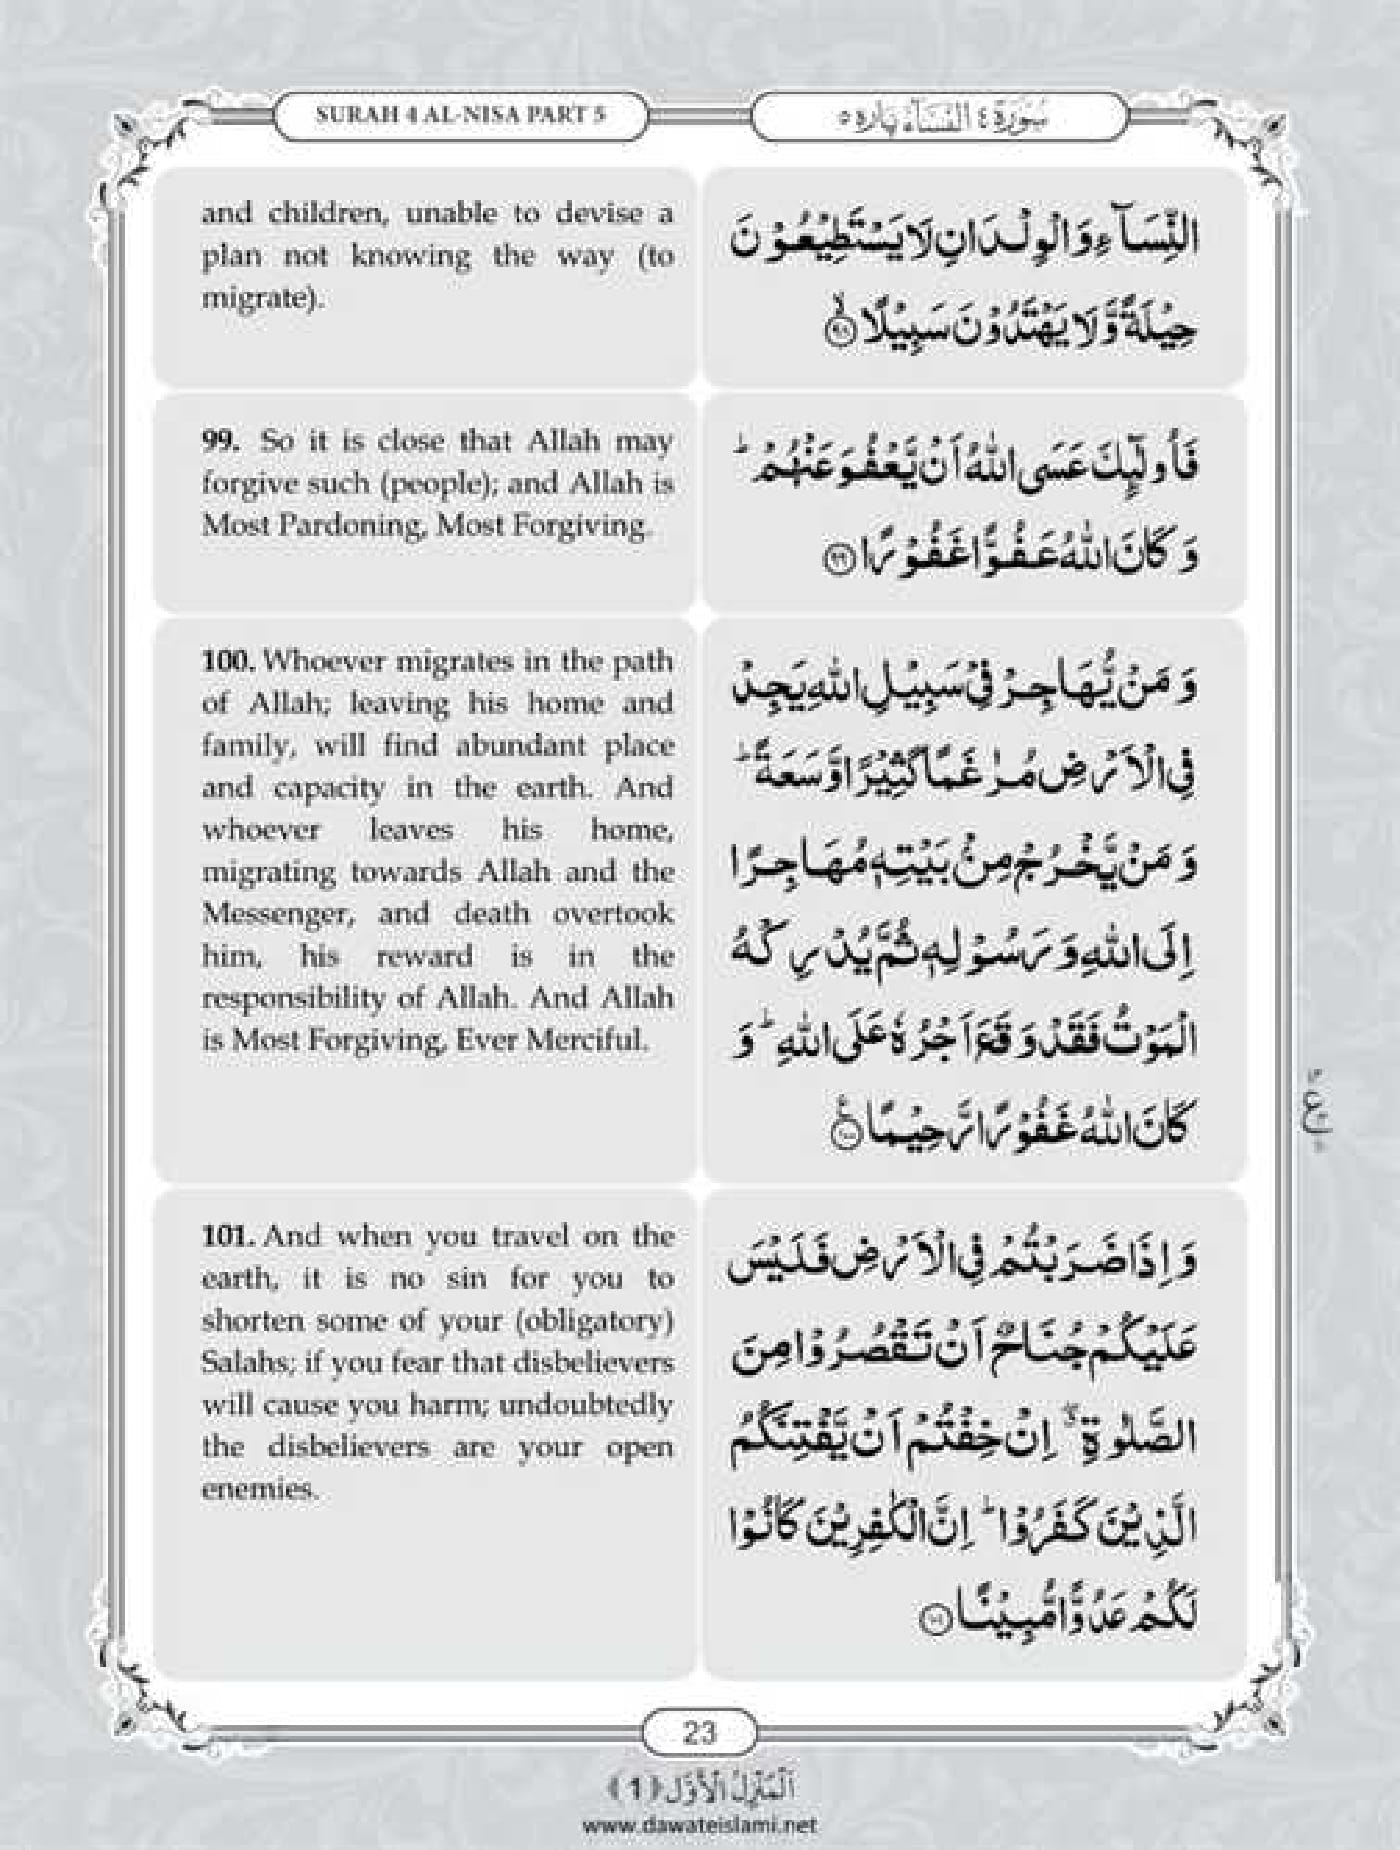 SURAH 4 AL-NISA PART 5
سُوْرَة ٤ النِّسَآء پاره ٥
and children, unable to devise a
plan not knowing the way (to
migrate).
النِّسَآءِ وَ الْوِلْدَانِ لَا يَسْتَطِيْعُوْنَ
حِيْلَةً وَّ لَا يَهْتَدُوْنَ سَبِيْلًا ﴿٩٨﴾ۙ
99. So it is close that Allah may
forgive such (people); and Allah is
Most Pardoning, Most Forgiving.
فَاُولٰٓىِٕكَ عَسَى اللّٰهُ اَنْ يَّعْفُوَ عَنْهُمْ ؕ
وَ كَانَ اللّٰهُ عَفُوًّا غَفُوْرًا ﴿٩٩﴾
100. Whoever migrates in the path
of Allah; leaving his home and
family, will find abundant place
and capacity in the earth. And
whoever leaves his home,
migrating towards Allah and the
Messenger, and death overtook
him, his reward is in the
responsibility of Allah. And Allah
is Most Forgiving, Ever Merciful.
وَ مَنْ يُّهَاجِرْ فِيْ سَبِيْلِ اللّٰهِ يَجِدْ
فِي الْاَرْضِ مُرٰغَمًا كَثِيْرًا وَّ سَعَةً ؕ
وَ مَنْ يَّخْرُجْ مِنْۢ بَيْتِهٖ مُهَاجِرًا
اِلَى اللّٰهِ وَ رَسُوْلِهٖ ثُمَّ يُدْرِكْهُ
الْمَوْتُ فَقَدْ وَقَعَ اَجْرُهٗ عَلَى اللّٰهِ ؕ وَ
كَانَ اللّٰهُ غَفُوْرًا رَّحِيْمًا ﴿١٠٠﴾
ع
101. And when you travel on the
earth, it is no sin for you to
shorten some of your (obligatory)
Salahs; if you fear that disbelievers
will cause you harm; undoubtedly
the disbelievers are your open
enemies.
وَ اِذَا ضَرَبْتُمْ فِي الْاَرْضِ فَلَيْسَ
عَلَيْكُمْ جُنَاحٌ اَنْ تَقْصُرُوْا مِنَ
الصَّلٰوةِ ۖۗ اِنْ خِفْتُمْ اَنْ يَّفْتِنَكُمُ
الَّذِيْنَ كَفَرُوْا ؕ اِنَّ الْكٰفِرِيْنَ كَانُوْا
لَكُمْ عَدُوًّا مُّبِيْنًا ﴿١٠١﴾
23
اَلْمَنْزِلُ الْاَوَّل ﴿1﴾
www.dawateislami.net